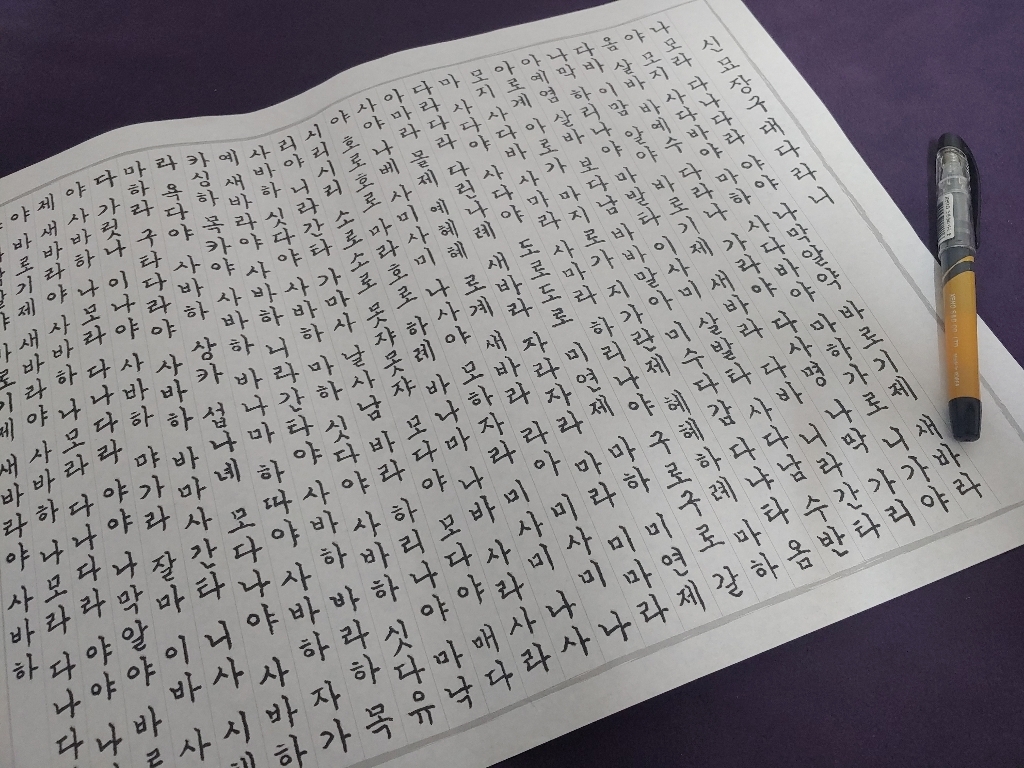 신묘장구대다라니
나모라다나다라야야나막알약바로기제새바라
야모지사다바야마하사다바야마하가로니가야
옴살바바예수다라나가라야다사명나막가리
다바이맘알야바로기제새바라다바니라간타
나막하리나야마발다이사미살발타사다남수반
아예염살바보다남바바말아미수다감다냐타옴
아로계아로가마지로가지가란제혜혜하례마하
모지사다바사마라사마라하리나야구로구로갈
마사다야사다야도로도로미연제마하미연제
다라다라다린나례새바라자라자라마라미마라
아마라몰제예혜혜로계새바라라아미사미나
사야나베사미사미나사야모하자라미사미나사
야호로호로마라호로하례바나마나바사라사라
시리시리소로소로못쟈못쟈모다야모다야매다
리야니라간타가마사날사남바라하라나야마낙
사바하싯다야사바하마하싯다야사바하싯다유
예새바라야사바하니라간타야사바하바라하목
카싱하목카야사바하바나마하따야사바하자가
라욕다야사바하상카섭나네모다나야사바하
마하라구타다라야사바하바마사간타이사시체
다가릿나이나야사바하먀가라잘마이바사
야사바하나모라다나다라야야나막알야바로
제새바라야사바하나모라다나다라야야나
야바로기제새바라야사바하